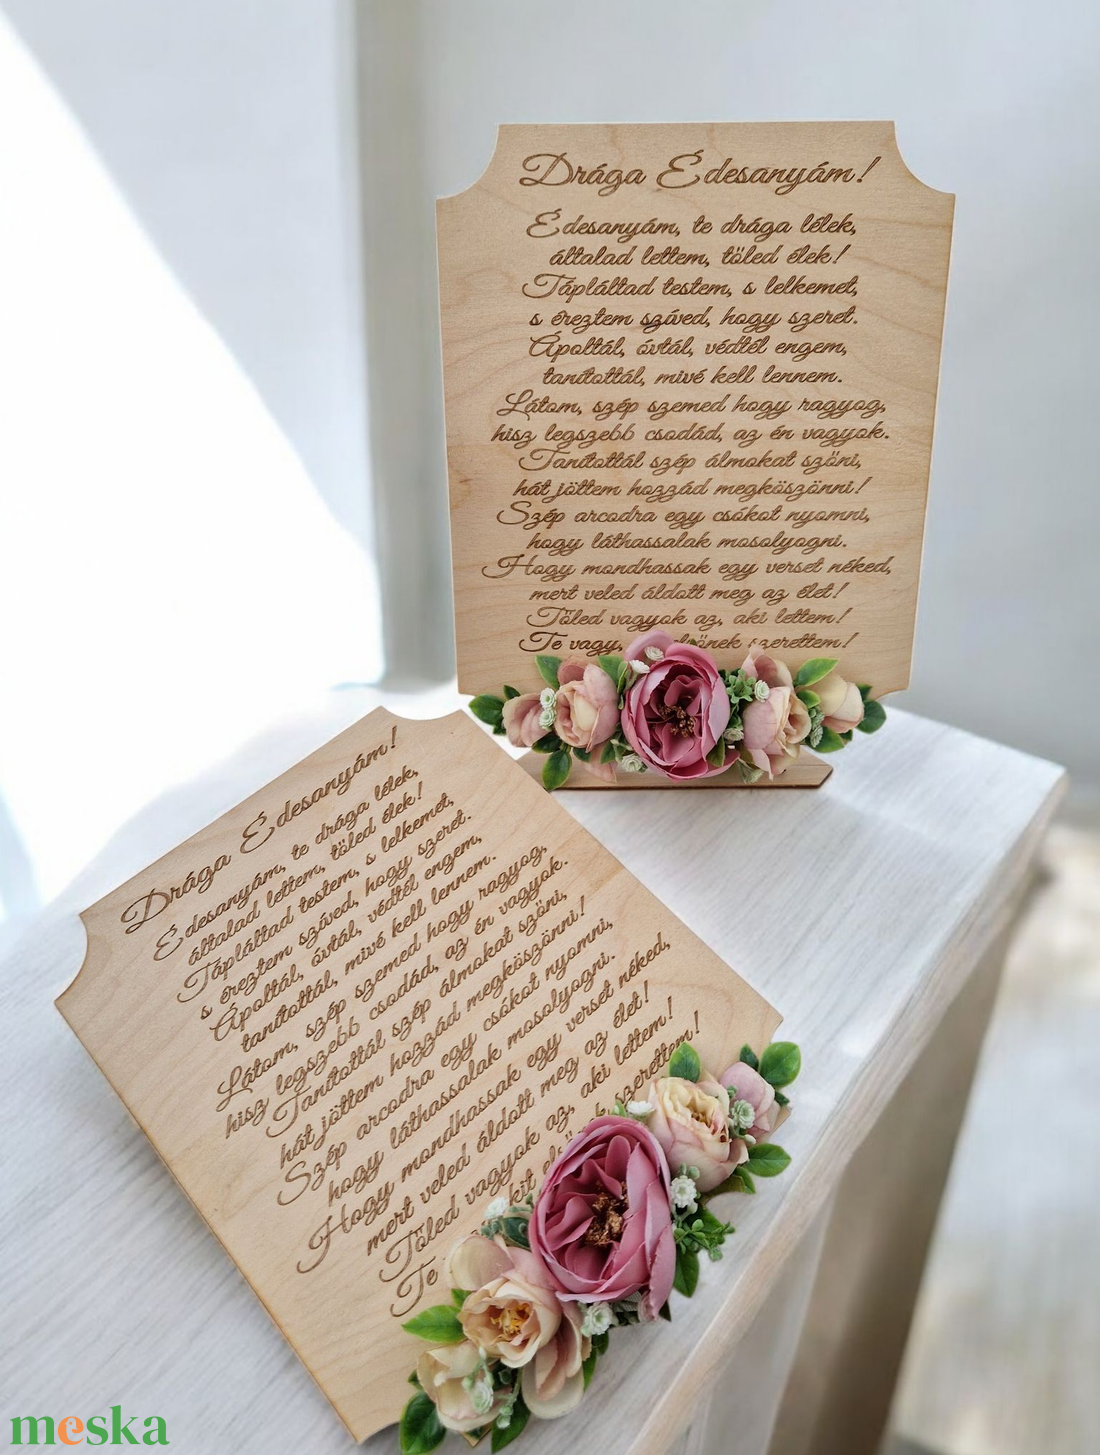 Drága Édesanyám!
Édesanyám, te drága lélek,
általad lettem, tőled élek!
Tápláltad testem, s lelkemet,
s éreztem szíved, hogy szeret.
Ápoltál, óvtál, védtél engem,
tanítottál, mivé kell lennem.
Látom, szép szemed hogy ragyog,
hisz legszebb csodád, az én vagyok.
Tanítottál szép álmokat szőni,
hát jöttem hozzád megköszönni!
Szép arcodra egy csókot nyomni,
hogy láthassalak mosolyogni.
Hogy mondhassak egy verset néked,
mert veled áldott meg az élet!
Tőled vagyok az, aki lettem!
Te vagy, szerettem!
Drága Édesanyám!
Édesanyám, te drága lélek,
általad lettem, tőled élek!
Tápláltad testem, s lelkemet,
s éreztem szíved, hogy szeret.
Ápoltál, óvtál, védtél engem,
tanítottál, mivé kell lennem.
Látom, szép szemed hogy ragyog,
hisz legszebb csodád, az én vagyok.
Tanítottál szép álmokat szőni,
hát jöttem hozzád megköszönni!
Szép arcodra egy csókot nyomni,
hogy láthassalak mosolyogni.
Hogy mondhassak egy verset néked,
mert veled áldott meg az élet!
Tőled vagyok az, aki lettem!
Te kit szerettem!
meska